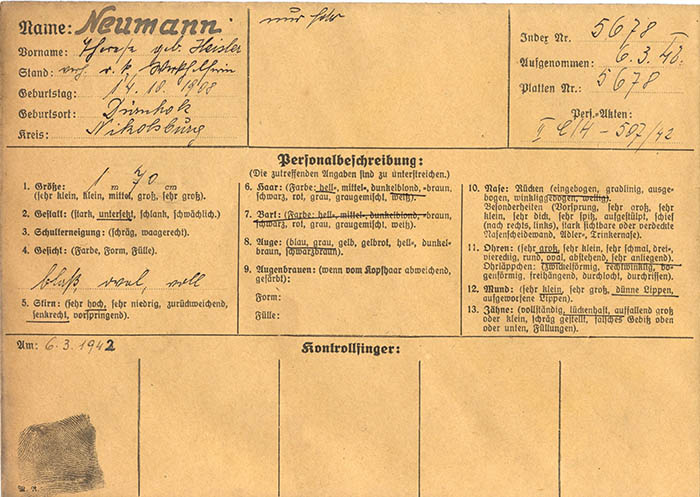 Name: Neumann
Vorname: Therese geb. Heisler
Stand: verh. r. k.
Geburtstag: 14. 10. 1908
Geburtsort: Dürnholz
Kreis: Nikolsburg
nur
Index Nr. 5678 I
Aufgenommen: 6.3.42.
Platten Nr.: 5678
Pers.-Akten:
II C/4 - 507/42
Personalbeschreibung:
(Die zutreffenden Angaben sind zu unterstreichen.)
1. Größe: 1 m 70 cm
(sehr klein, klein, mittel, groß, sehr groß).
2. Gestalt: (stark, untersetzt, schlank, schwächlich).
3. Schulterneigung: (schräg, waagerecht).
4. Gesicht: (Farbe, Form, Fülle).
blaß, oval, voll
5. Stirn: (sehr hoch, sehr niedrig, zurückweichend,
senkrecht, vorspringend).
6. Haar: (Farbe: hell-, mittel-, dunkelblond, -braun,
schwarz, rot, grau, graugemischt, weiß).
7. Bart: (Farbe: hell-, mittel-, dunkelblond, -braun,
schwarz, rot, grau, graugemischt, weiß).
8. Auge: (blau, grau, gelb, gelbrot, hell-, dunkel-
braun, schwarzbraun).
9. Augenbrauen: (wenn vom Kopfhaar abweichend,
gefärbt):
Form:
Fülle:
10. Nase: Rücken (eingebogen, gradlinig, ausge-
bogen, winkliggebogen, wellig).
Besonderheiten (Vorsprung, sehr groß, sehr klein,
sehr dick, sehr spitz, aufgestülpt, schief
(nach rechts, links), stark sichtbare oder verdeckte
Nasenscheidewand, Adler-, Trinkernase).
11. Ohren: (sehr groß, sehr klein, sehr schmal, drei-,
viereckig, rund, oval, abstehend, sehr anliegend).
Ohrläppchen: (zwickelförmig, rechtwinklig, bo-
genförmig, freihängend, durchlocht, durchrissen).
12. Mund: (sehr klein, sehr groß, dünne Lippen,
aufgeworfene Lippen).
13. Zähne: (vollständig, lückenhaft, auffallend groß
oder klein, schräg gestellt, falsches Gebiß oben
oder unten, Füllungen).
Am: 6.3.1942
Kontrollfinger: